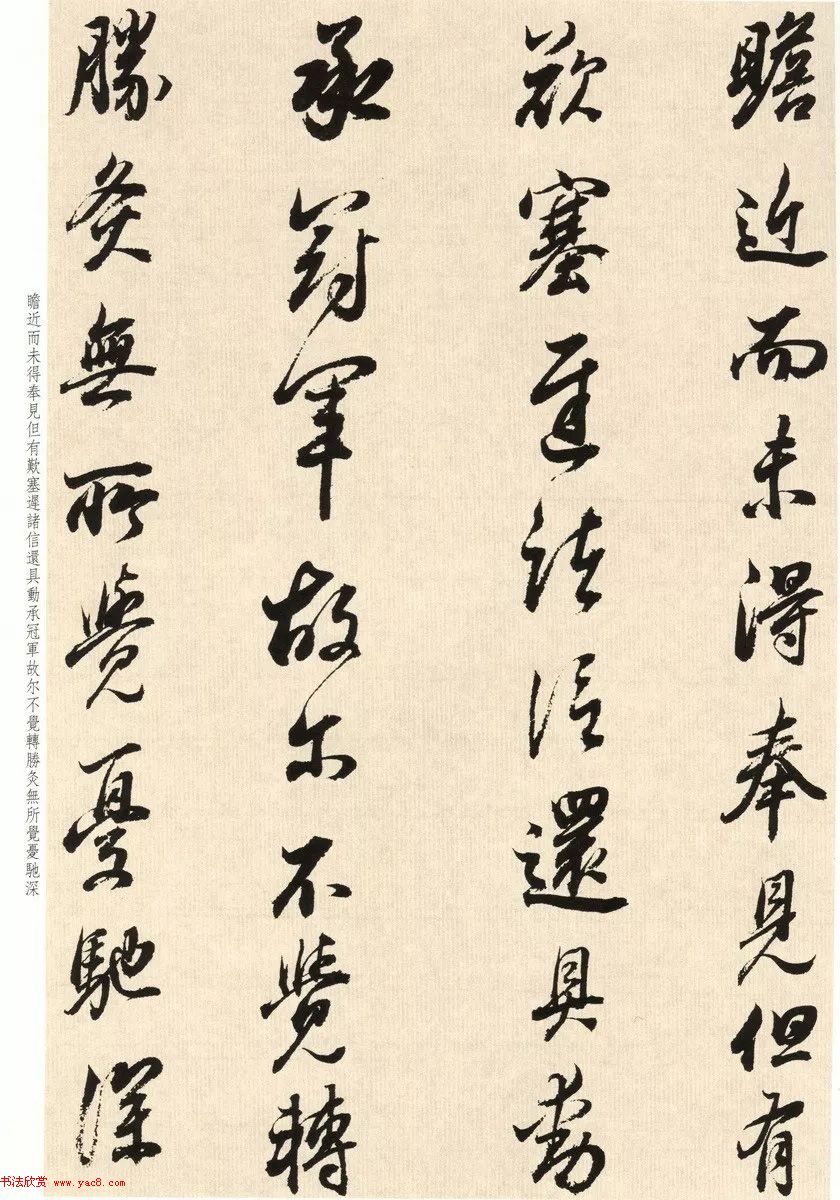 瞻近而未得奉見但有
歎塞遲諸信還具動
承冠軍故尔不覺轉
勝灸無所覺憂馳深
瞻近而未得奉見但有歎塞遲諸信還具動承冠軍故尔不覺轉勝灸無所覺憂馳深
书法欣赏 www.yac8.com